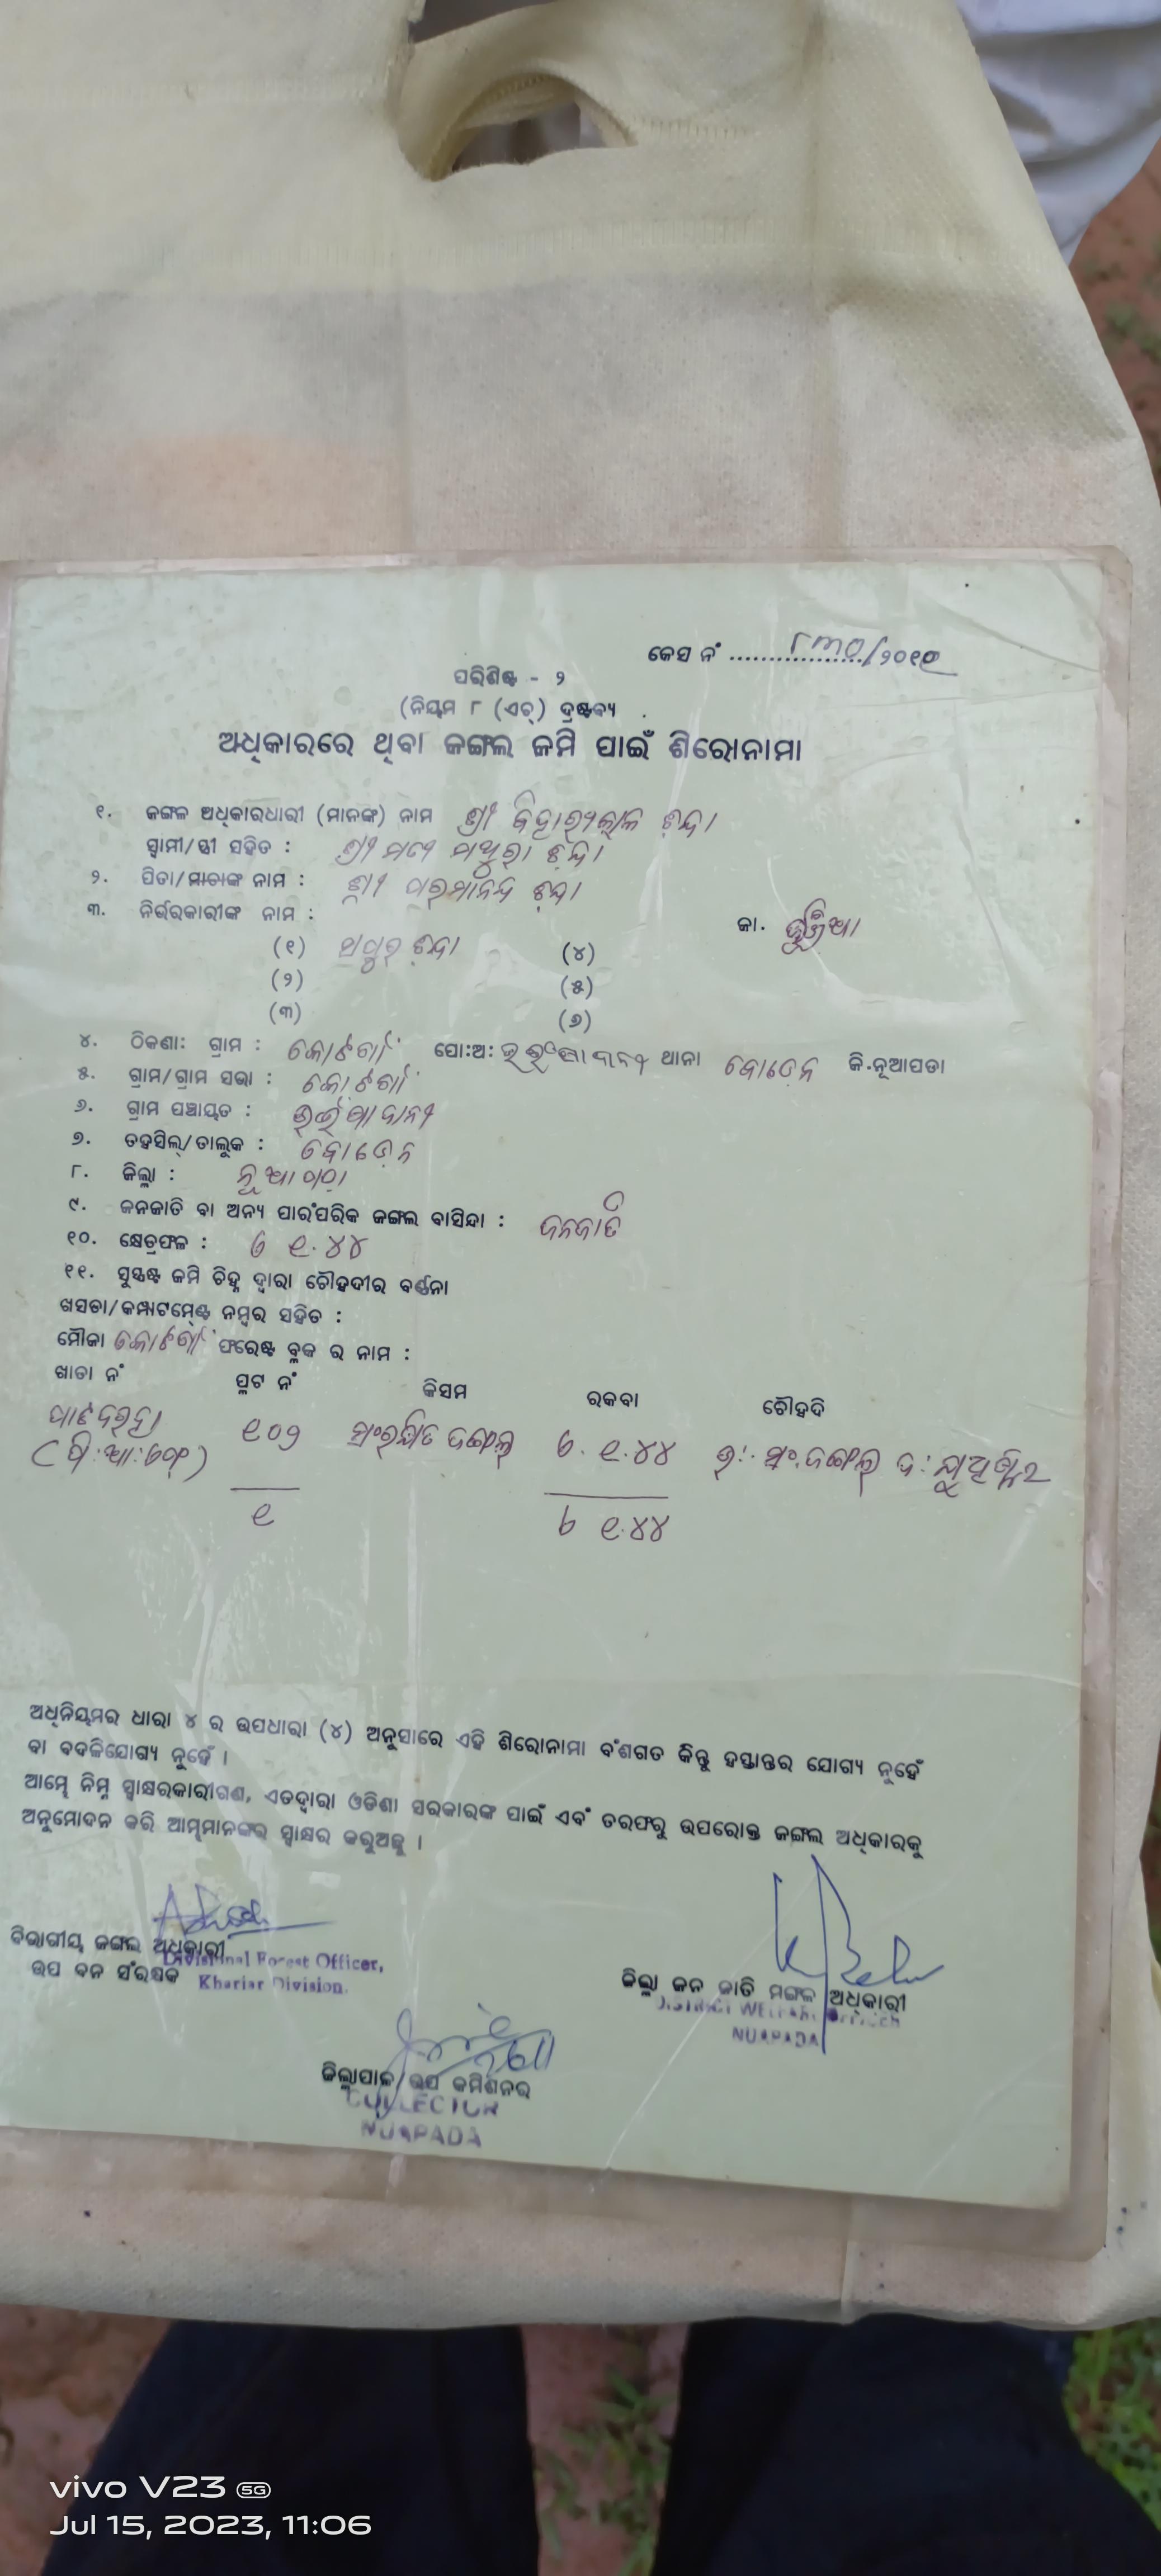 କେସ ନଂ ................./୨୦୧୧
ପରିଶିଷ୍ଟ - ୨
(ନିୟମ ୮ (ଏଚ୍) ଦ୍ରଷ୍ଟବ୍ୟ
ଅଧିକାରରେ ଥିବା ଜଙ୍ଗଲ ଜମି ପାଇଁ ଶିରୋନାମା
୧. ଜଙ୍ଗଲ ଅଧିକାରଧାରୀ (ମାନଙ୍କ) ନାମ ଶ୍ରୀ ବିହାରୀଲାଲ
ସ୍ଵାମୀ/ସ୍ତ୍ରୀ ସହିତ : ଶ୍ରୀମତୀ ମଥୁରା
୨. ପିତା/ମାତାଙ୍କ ନାମ : ଶ୍ରୀ ପରମାନନ୍ଦ
୩. ନିର୍ଭରକାରୀଙ୍କ ନାମ : ଜା. ଭୁଞ୍ଜିଆ
(୧) (୪)
(୨) (୫)
(୩) (୬)
୪. ଠିକଣା: ଗ୍ରାମ : ପୋ:ଅ: ଥାନା ବୋଡେନ ଜି.ନୂଆପଡା
୫. ଗ୍ରାମ/ଗ୍ରାମ ସଭା :
୬. ଗ୍ରାମ ପଞ୍ଚାୟତ :
୭. ତହସିଲ୍/ତାଲୁକ : ବୋଡେନ
୮. ଜିଲ୍ଲା : ନୂଆପଡ଼ା
୯. ଜନଜାତି ବା ଅନ୍ୟ ପାରଂପରିକ ଜଙ୍ଗଲ ବାସିନ୍ଦା : ଜନଜାତି
୧୦. କ୍ଷେତ୍ରଫଳ : ୧.୪୪
୧୧. ସୁସ୍ପଷ୍ଟ ଜମି ଚିହ୍ନ ଦ୍ଵାରା ଚୌହଦୀର ବର୍ଣ୍ଣନା
ଖସଡା/କମ୍ପାଟମେଣ୍ଟ ନମ୍ବର ସହିତ :
ମୌଜା ଫରେଷ୍ଟ ବ୍ଲକ ର ନାମ :
ଖାତା ନଂ ପ୍ଲଟ ନଂ କିସମ ରକବା ଚୌହଦି
୧୦୨ ସଂରକ୍ଷିତ ଜଙ୍ଗଲ ୧.୪୪ ଉ: ସଂ.ଜଙ୍ଗଲ ଦ:
୧ ୧.୪୪
ଅଧିନିୟମର ଧାରା ୪ ର ଉପଧାରା (୪) ଅନୁସାରେ ଏହି ଶିରୋନାମା ବଂଶଗତ କିନ୍ତୁ ହସ୍ତାନ୍ତର ଯୋଗ୍ୟ ନୁହେଁ
ବା ବଦଳିଯୋଗ୍ୟ ନୁହେଁ ।
ଆମ୍ଭେ ନିମ୍ନ ସ୍ଵାକ୍ଷରକାରୀଗଣ, ଏତଦ୍ଵାରା ଓଡିଶା ସରକାରଙ୍କ ପାଇଁ ଏବଂ ତରଫରୁ ଉପରୋକ୍ତ ଜଙ୍ଗଲ ଅଧିକାରକୁ
ଅନୁମୋଦନ କରି ଆମ୍ଭମାନଙ୍କର ସ୍ଵାକ୍ଷର କରୁଅଛୁ ।
ବିଭାଗୀୟ ଜଙ୍ଗଲ ଅଧିକାରୀ
Divisional Forest Officer,
ଉପ ବନ ସଂରକ୍ଷକ Khariar Division.
ଜିଲ୍ଲା ଜନ ଜାତି ମଙ୍ଗଳ ଅଧିକାରୀ
DISTRICT WELFARE OFFICER
NUAPADA
ଜିଲ୍ଲାପାଳ/ଉପ କମିଶନର
COLLECTOR
NUAPADA
vivo V23 5G
Jul 15, 2023, 11:06